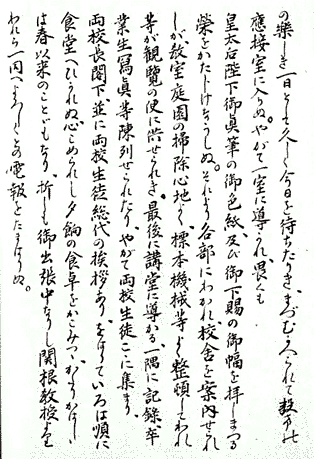 の樂しき一日として久しく今日を待ちたりき、まづむかへられて教官の
應接室に入りぬ。やがて一室に導かれ、畏くも
皇太后陛下御眞筆の御色紙、及び御下賜の御幅を拝しまつる
榮をかたじけなうしぬ。それより各部にわかれ校舎を案内せられ
しが、教室庭園の掃除心地よく、標本機械等よく整頓してわれ
等が觀覽の便に供せられき。最後に講堂に導かる、一隅に記録、卒
業生寫眞等陳列せられたり、やがて両校生徒こゝに集まり、
両校長閣下並に両校生徒総代の挨拶あり、をはりていろは順に
食堂へいざなはれぬ心こめられし夕餉の食卓をかこみつゝ
は春以来のことどもなり、折しも御出張中なりし関根教授より
われら一同へよろしくとの電報をたまはりぬ。